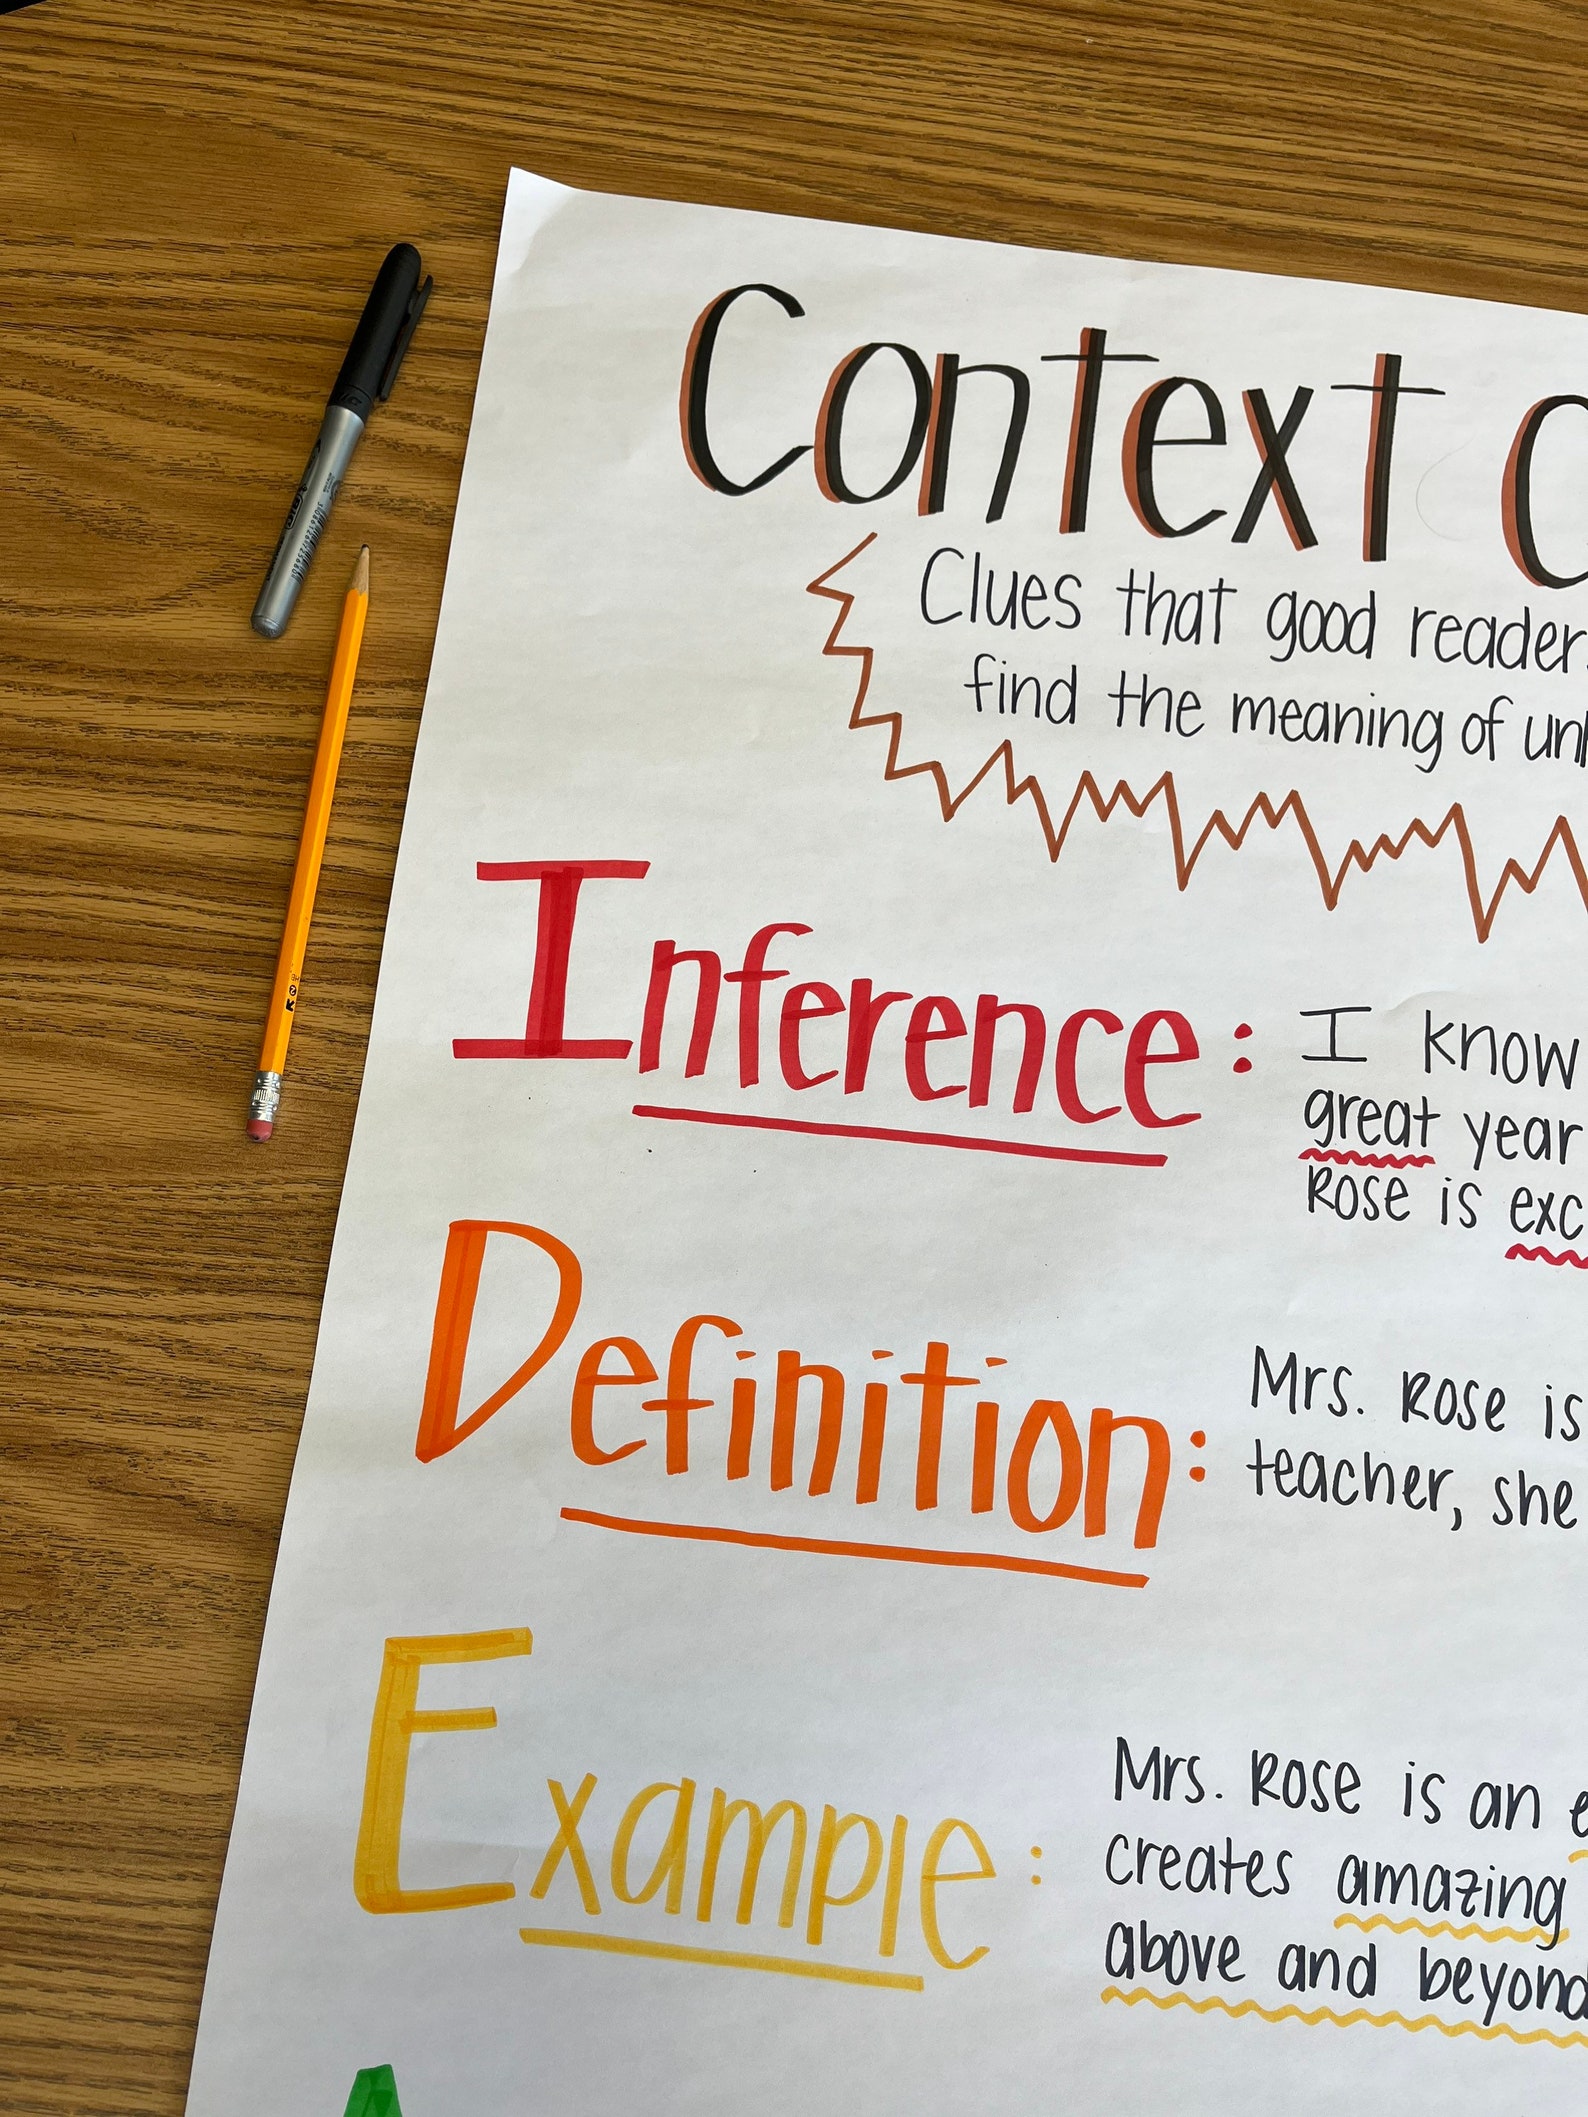 Context C
Clues that good reader
find the meaning of un
Inference: I know
great year
Rose is exc
Definition: Mrs. Rose is
teacher, she
Example: Mrs. Rose is an e
creates amazing
above and beyond
A